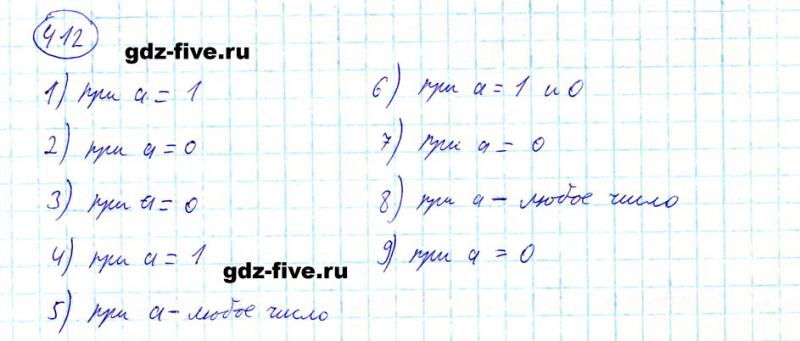 412
gdz-five.ru
1) при a = 1
2) при a = 0
3) при a = 0
4) при a = 1
gdz-five.ru
5) при a - любое число
6) при a = 1 и 0
7) при a = 0
8) при a - любое число
9) при a = 0